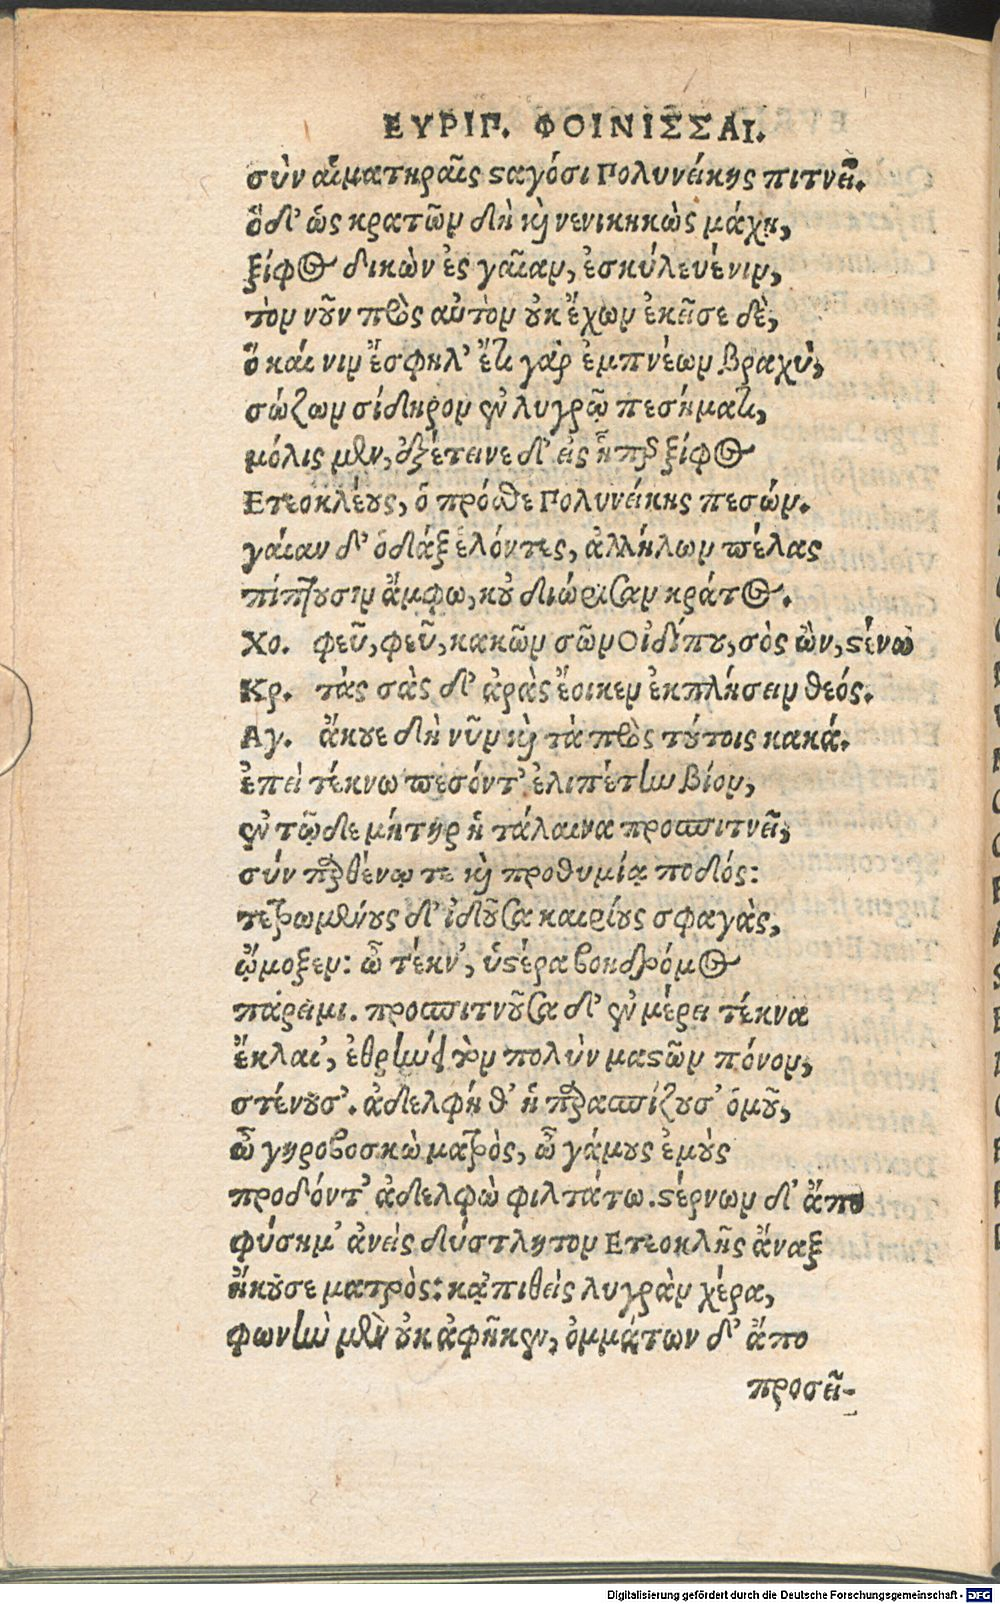 ΕΥΡΙΠ. ΦΟΙΝΙΣΣΑΙ.
σὺν αἱματηραῖς ϛαγόσι Πολυνείκης πιτνεῖ.
ὃ δ' ὡς κρατῶν δὴ καὶ νενικηκὼς μάχῃ,
ξίφος δικὼν ἐς γαῖαν, ἐσκύλευέ νιν,
τὸν νοῦν πρὸς αὐτὸν οὐκ ἔχων ἐκεῖσε δὲ,
ὅ καί νιν ἔσφηλ' ἔτι γὰρ ἐμπνέων βραχὺ,
σώζων σίδηρον ἐν λυγρῷ πεσήματι,
μόλις μὲν, ἐξέτεινε δ' εἰς ἧπαρ ξίφος
Ετεοκλέους, ὁ πρόσθε Πολυνείκης πεσών.
γαίαν δ' ὀδὰξ ἑλόντες, ἀλλήλων πέλας
πίπτουσιν ἄμφω, κοὐ διώρισαν κράτος.
Χο. φεῦ, φεῦ, κακῶν σῶν Οἰδίπου, σὸς ὢν, ϛένω
Κρ. τὰς σὰς δ' ἀρὰς ἔοικεν ἐκπλήσειν θεός.
Αγ. ἄκουε δὴ νῦν καὶ τὰ πρὸς τούτοις κακά.
ἐπεὶ τέκνω πεσόντ' ἐλιπέτην βίον,
ἐν τῷδε μήτηρ ἡ τάλαινα προσπιτνεῖ,
σύν παρθένῳ τε καὶ προθυμίᾳ ποδός:
τετρωμένους δ' ἰδοῦσα καιρίους σφαγὰς,
ᾤμοξεν: ὦ τέκν', ὑϛέρα βοηδρόμος
πάρειμι. προσπιτνοῦσα δ' ἐν μέρει τέκνα
ἔκλαι', ἐθρήνει τὸν πολὺν μαϛῶν πόνον,
στένουσ'. ἀδελφή θ' ἡ παρασπίζουσ' ὁμοῦ,
ὦ γηροβοσκὼ ματρὸς, ὦ γάμους ἐμοὺς
προδόντ' ἀδελφὼ φιλτάτω. ϛέρνων δ' ἄπο
φύσημ' ἀνεὶς δύστλητον Ετεοκλῆς ἄναξ
ἤκουσε ματρὸς: κᾀπιθεὶς λυγρὰν χέρα,
φωνὴν μὲν οὐκ ἀφῆκεν, ὀμμάτων δ' ἄπο
προσεῖ-
Digitalisierung gefördert durch die Deutsche Forschungsgemeinschaft - DFG